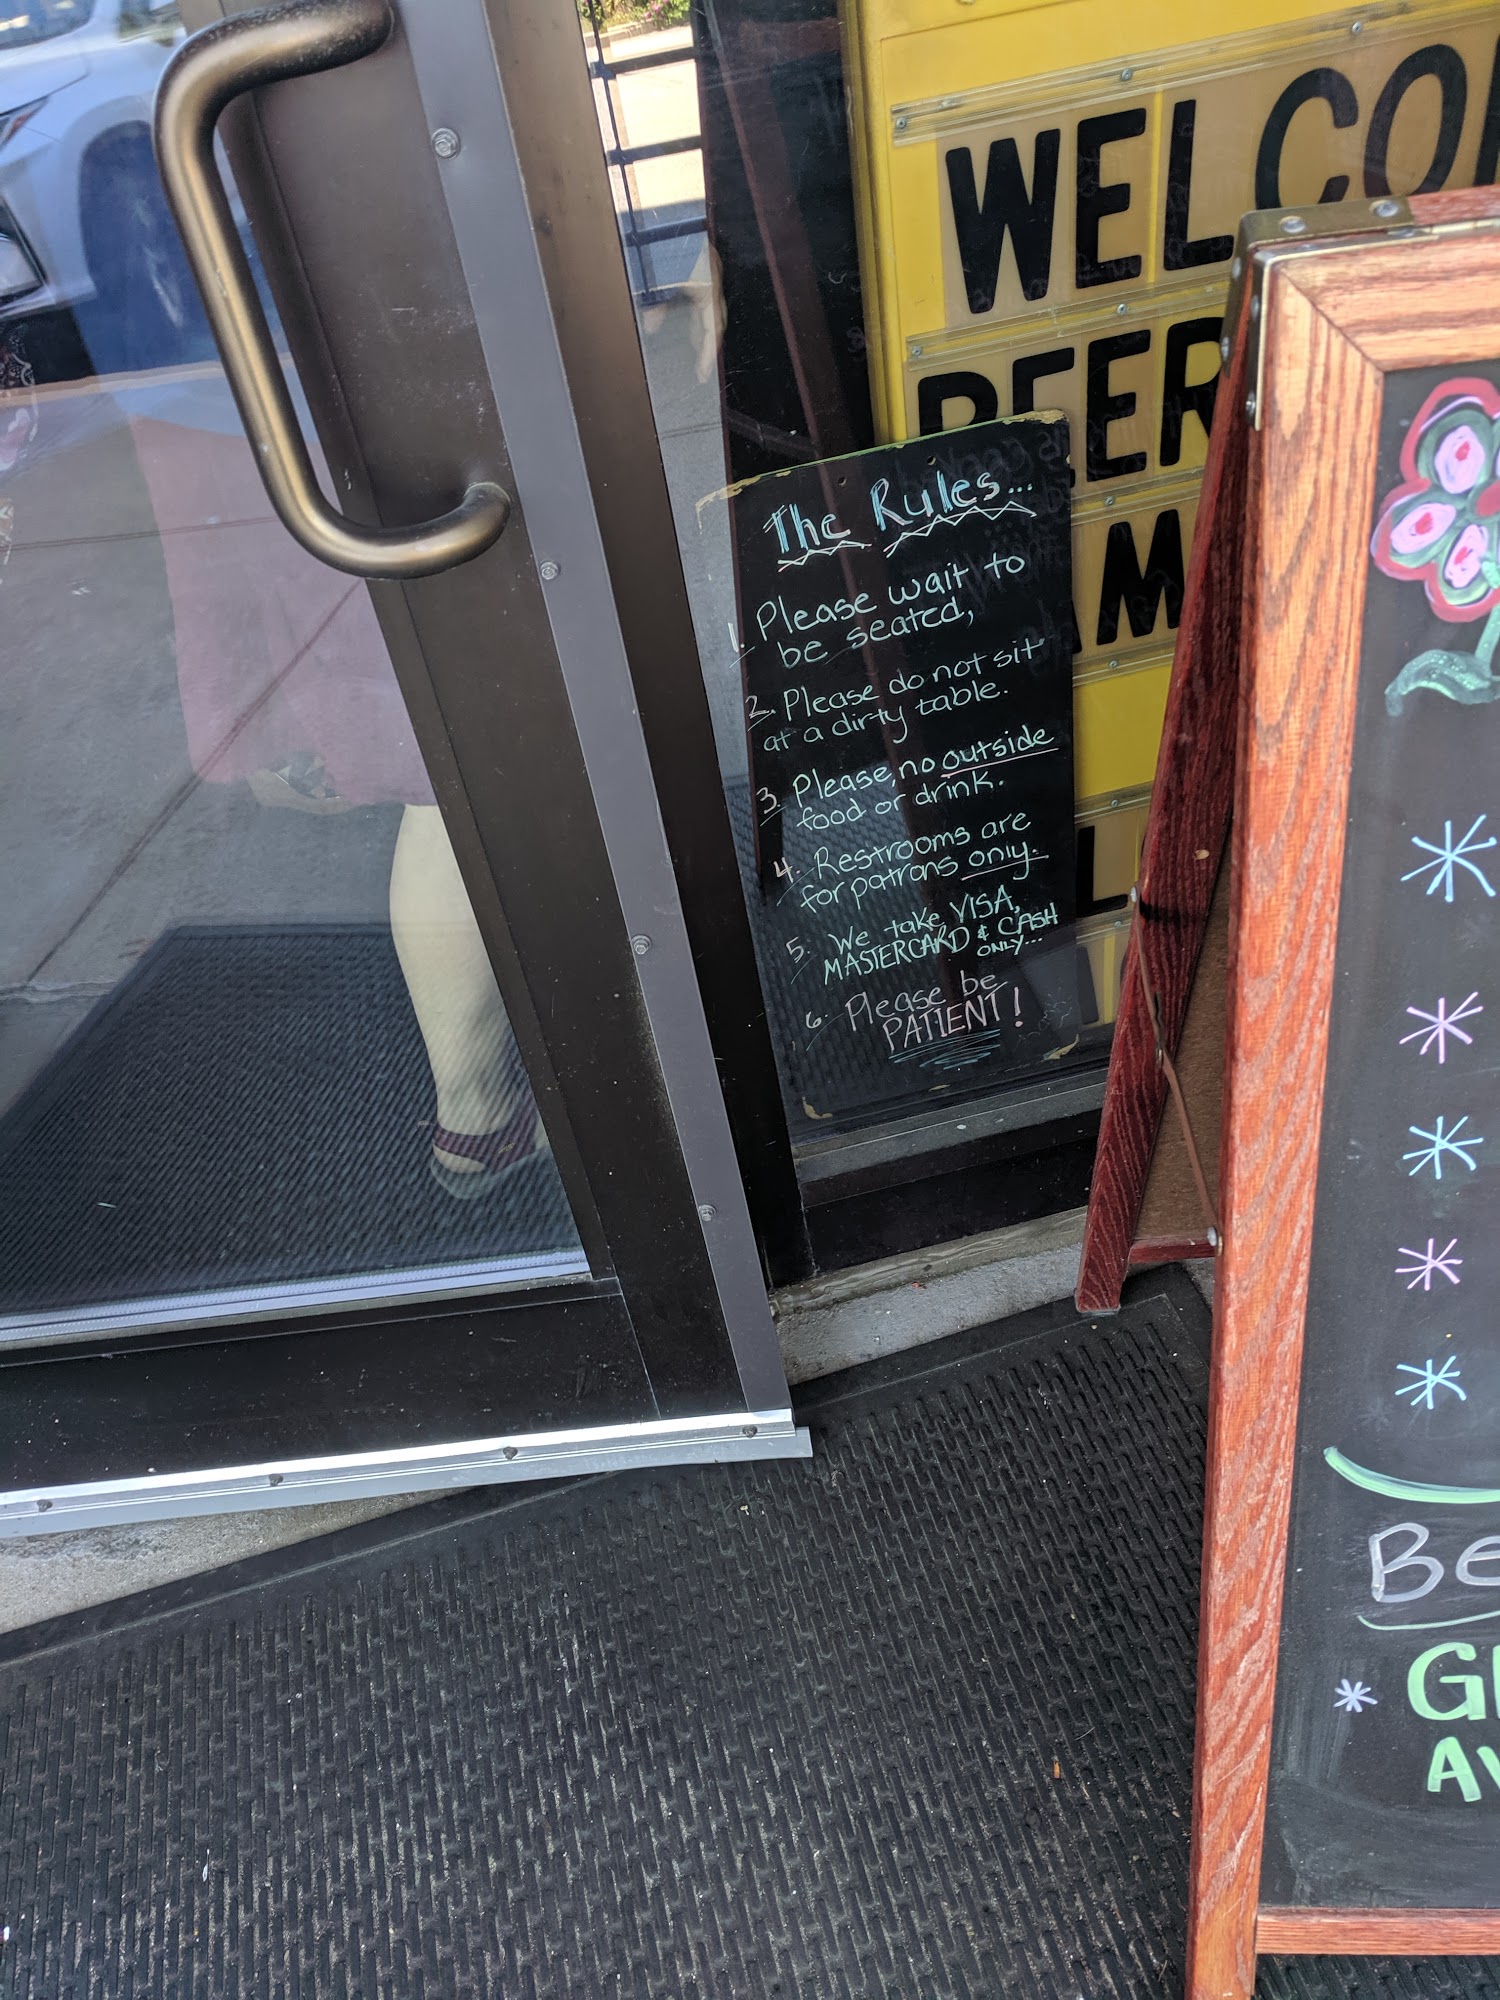 The Rules...
1. Please wait to
be seated,
2. Please do not sit
at a dirty table.
3. Please, no outside
food or drink.
4. Restrooms are
for patrons only.
5. We take VISA,
MASTERCARD & CASH
ONLY...
6. Please be
PATIENT!